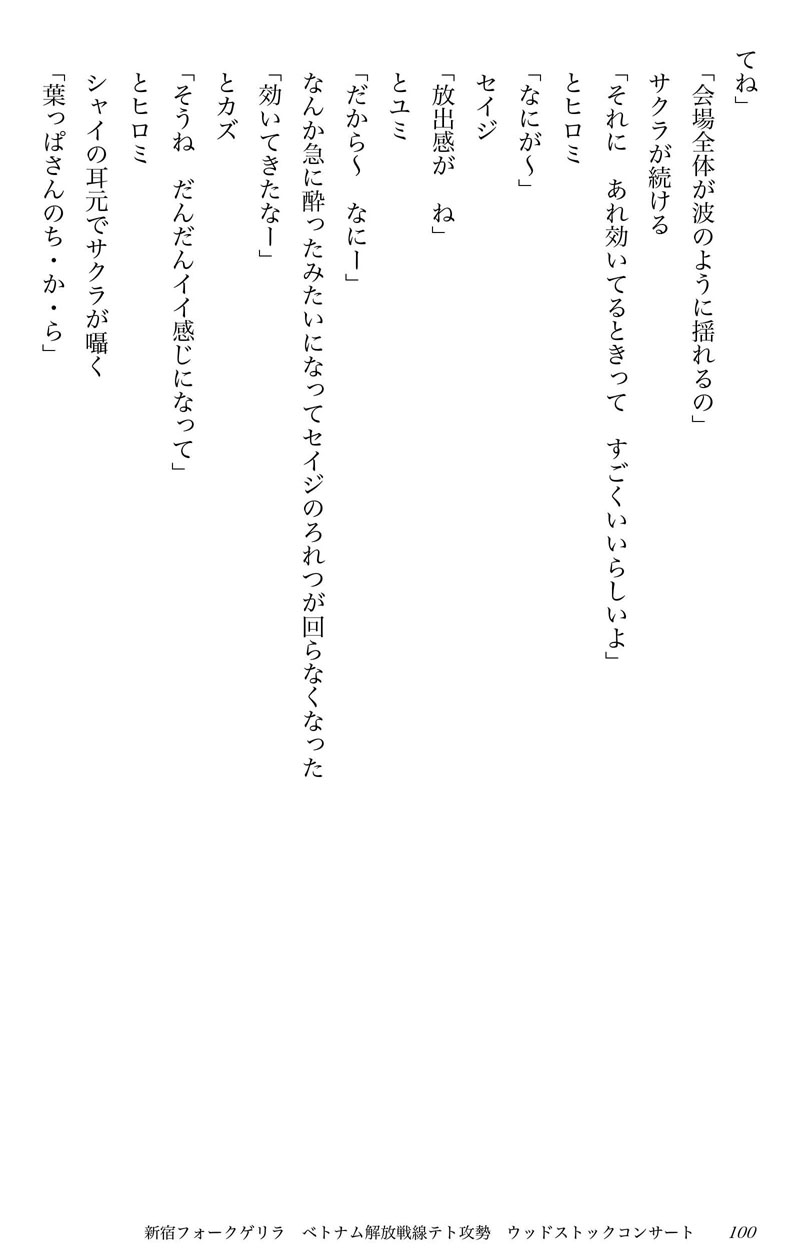 てね」
「会場全体が波のように揺れるの」
サクラが続ける
「それに　あれ効いてるときって　すごくいいらしいよ」
とヒロミ
「なにが〜」
セイジ
「放出感が　ね」
とユミ
「だから〜　なにー」
なんか急に酔ったみたいになってセイジのろれつが回らなくなった
「効いてきたなー」
とカズ
「そうね　だんだんイイ感じになって」
とヒロミ
シャイの耳元でサクラが囁く
「葉っぱさんのち・か・ら」
新宿フォークゲリラ　ベトナム解放戦線テト攻勢　ウッドストックコンサート　100